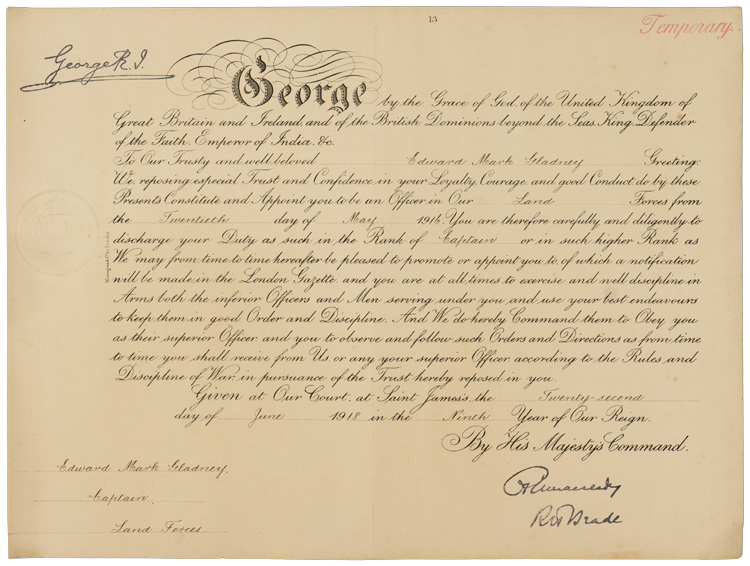 13
Temporary.
George R.I.
George by the Grace of God, of the United Kingdom of
Great Britain and Ireland, and of the British Dominions beyond the Seas, King, Defender
of the Faith, Emperor of India, &c.
To Our Trusty and well beloved Edward Mark Gladney Greeting:
We, reposing especial Trust and Confidence in your Loyalty, Courage, and good Conduct, do by these
Presents Constitute and Appoint you to be an Officer in Our Land Forces from
the Twentieth day of May 1916. You are therefore carefully and diligently to
discharge your Duty as such in the Rank of Captain or in such higher Rank as
We may from time to time hereafter be pleased to promote or appoint you to, of which a notification
will be made in the London Gazette, and you are at all times to exercise and well discipline in
Arms both the inferior Officers and Men serving under you and use your best endeavours
to keep them in good Order and Discipline. And We do hereby Command them to Obey you
as their superior Officer, and you to observe and follow such Orders and Directions as from time
to time you shall receive from Us, or any your superior Officer, according to the Rules and
Discipline of War, in pursuance of the Trust hereby reposed in you.
Given at Our Court, at Saint James's, the Twenty-second
day of June 1918 in the Ninth Year of Our Reign.
By His Majesty's Command.
Edward Mark Gladney.
Captain.
Land Forces.
R H Brade